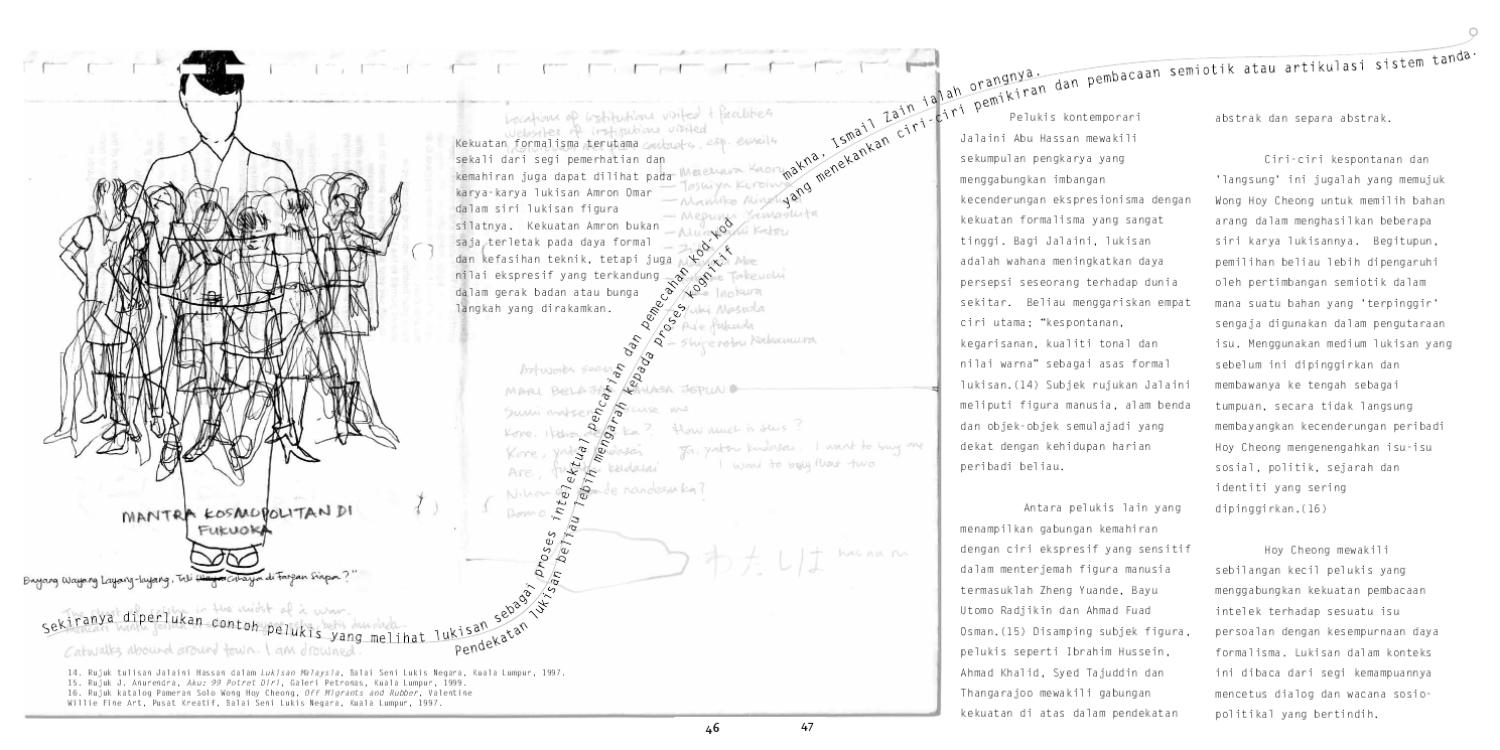 Kekuatan formalisme terutama
sekali dari segi pemerhatian dan
kemahiran juga dapat dilihat pada
karya-karya lukisan Amron Omar
dalam siri lukisan figura
silatnya. Kekuatan Amron bukan
saja terletak pada daya formal
dan kefasihan teknik, tetapi juga
nilai ekspresif yang terkandung
dalam gerak badan atau bunga
langkah yang dirakamkan.
Locations of institutions visited + facilities
websites of institutions visited
contacts, esp. emails
MANTRA KOSMOPOLITAN DI
FUKUOKA
How much is this ?
I want to buy
わたしは
Catwalks abound around town. I am drowned.
Sekiranya diperlukan contoh pelukis yang melihat lukisan sebagai proses intelektual pencarian dan pemecahan kod-kod makna, Ismail Zain ialah orangnya.
Pendekatan lukisan beliau lebih mengarah kepada proses kognitif yang menekankan ciri-ciri pemikiran dan pembacaan semiotik atau artikulasi sistem tanda.
14. Rujuk tulisan Jalaini Hassan dalam Lukisan Malaysia, Balai Seni Lukis Negara, Kuala Lumpur, 1997.
15. Rujuk J. Anurendra, Aku: 99 Potret Diri, Galeri Petronas, Kuala Lumpur, 1999.
16. Rujuk katalog Pameran Solo Wong Hoy Cheong, Off Migrants and Rubber, Valentine
Willie Fine Art, Pusat Kreatif, Balai Seni Lukis Negara, Kuala Lumpur, 1997.
46
47
Pelukis kontemporari
Jalaini Abu Hassan mewakili
sekumpulan pengkarya yang
menggabungkan imbangan
kecenderungan ekspresionisma dengan
kekuatan formalisma yang sangat
tinggi. Bagi Jalaini, lukisan
adalah wahana meningkatkan daya
persepsi seseorang terhadap dunia
sekitar. Beliau menggariskan empat
ciri utama; "kespontanan,
kegarisanan, kualiti tonal dan
nilai warna" sebagai asas formal
lukisan.(14) Subjek rujukan Jalaini
meliputi figura manusia, alam benda
dan objek-objek semulajadi yang
dekat dengan kehidupan harian
peribadi beliau.
Antara pelukis lain yang
menampilkan gabungan kemahiran
dengan ciri ekspresif yang sensitif
dalam menterjemah figura manusia
termasuklah Zheng Yuande, Bayu
Utomo Radjikin dan Ahmad Fuad
Osman.(15) Disamping subjek figura,
pelukis seperti Ibrahim Hussein,
Ahmad Khalid, Syed Tajuddin dan
Thangarajoo mewakili gabungan
kekuatan di atas dalam pendekatan
abstrak dan separa abstrak.
Ciri-ciri kespontanan dan
'langsung' ini jugalah yang memujuk
Wong Hoy Cheong untuk memilih bahan
arang dalam menghasilkan beberapa
siri karya lukisannya. Begitupun,
pemilihan beliau lebih dipengaruhi
oleh pertimbangan semiotik dalam
mana suatu bahan yang 'terpinggir'
sengaja digunakan dalam pengutaraan
isu. Menggunakan medium lukisan yang
sebelum ini dipinggirkan dan
membawanya ke tengah sebagai
tumpuan, secara tidak langsung
membayangkan kecenderungan peribadi
Hoy Cheong mengenengahkan isu-isu
sosial, politik, sejarah dan
identiti yang sering
dipinggirkan.(16)
Hoy Cheong mewakili
sebilangan kecil pelukis yang
menggabungkan kekuatan pembacaan
intelek terhadap sesuatu isu
persoalan dengan kesempurnaan daya
formalisma. Lukisan dalam konteks
ini dibaca dari segi kemampuannya
mencetus dialog dan wacana sosio-
politikal yang bertindih.